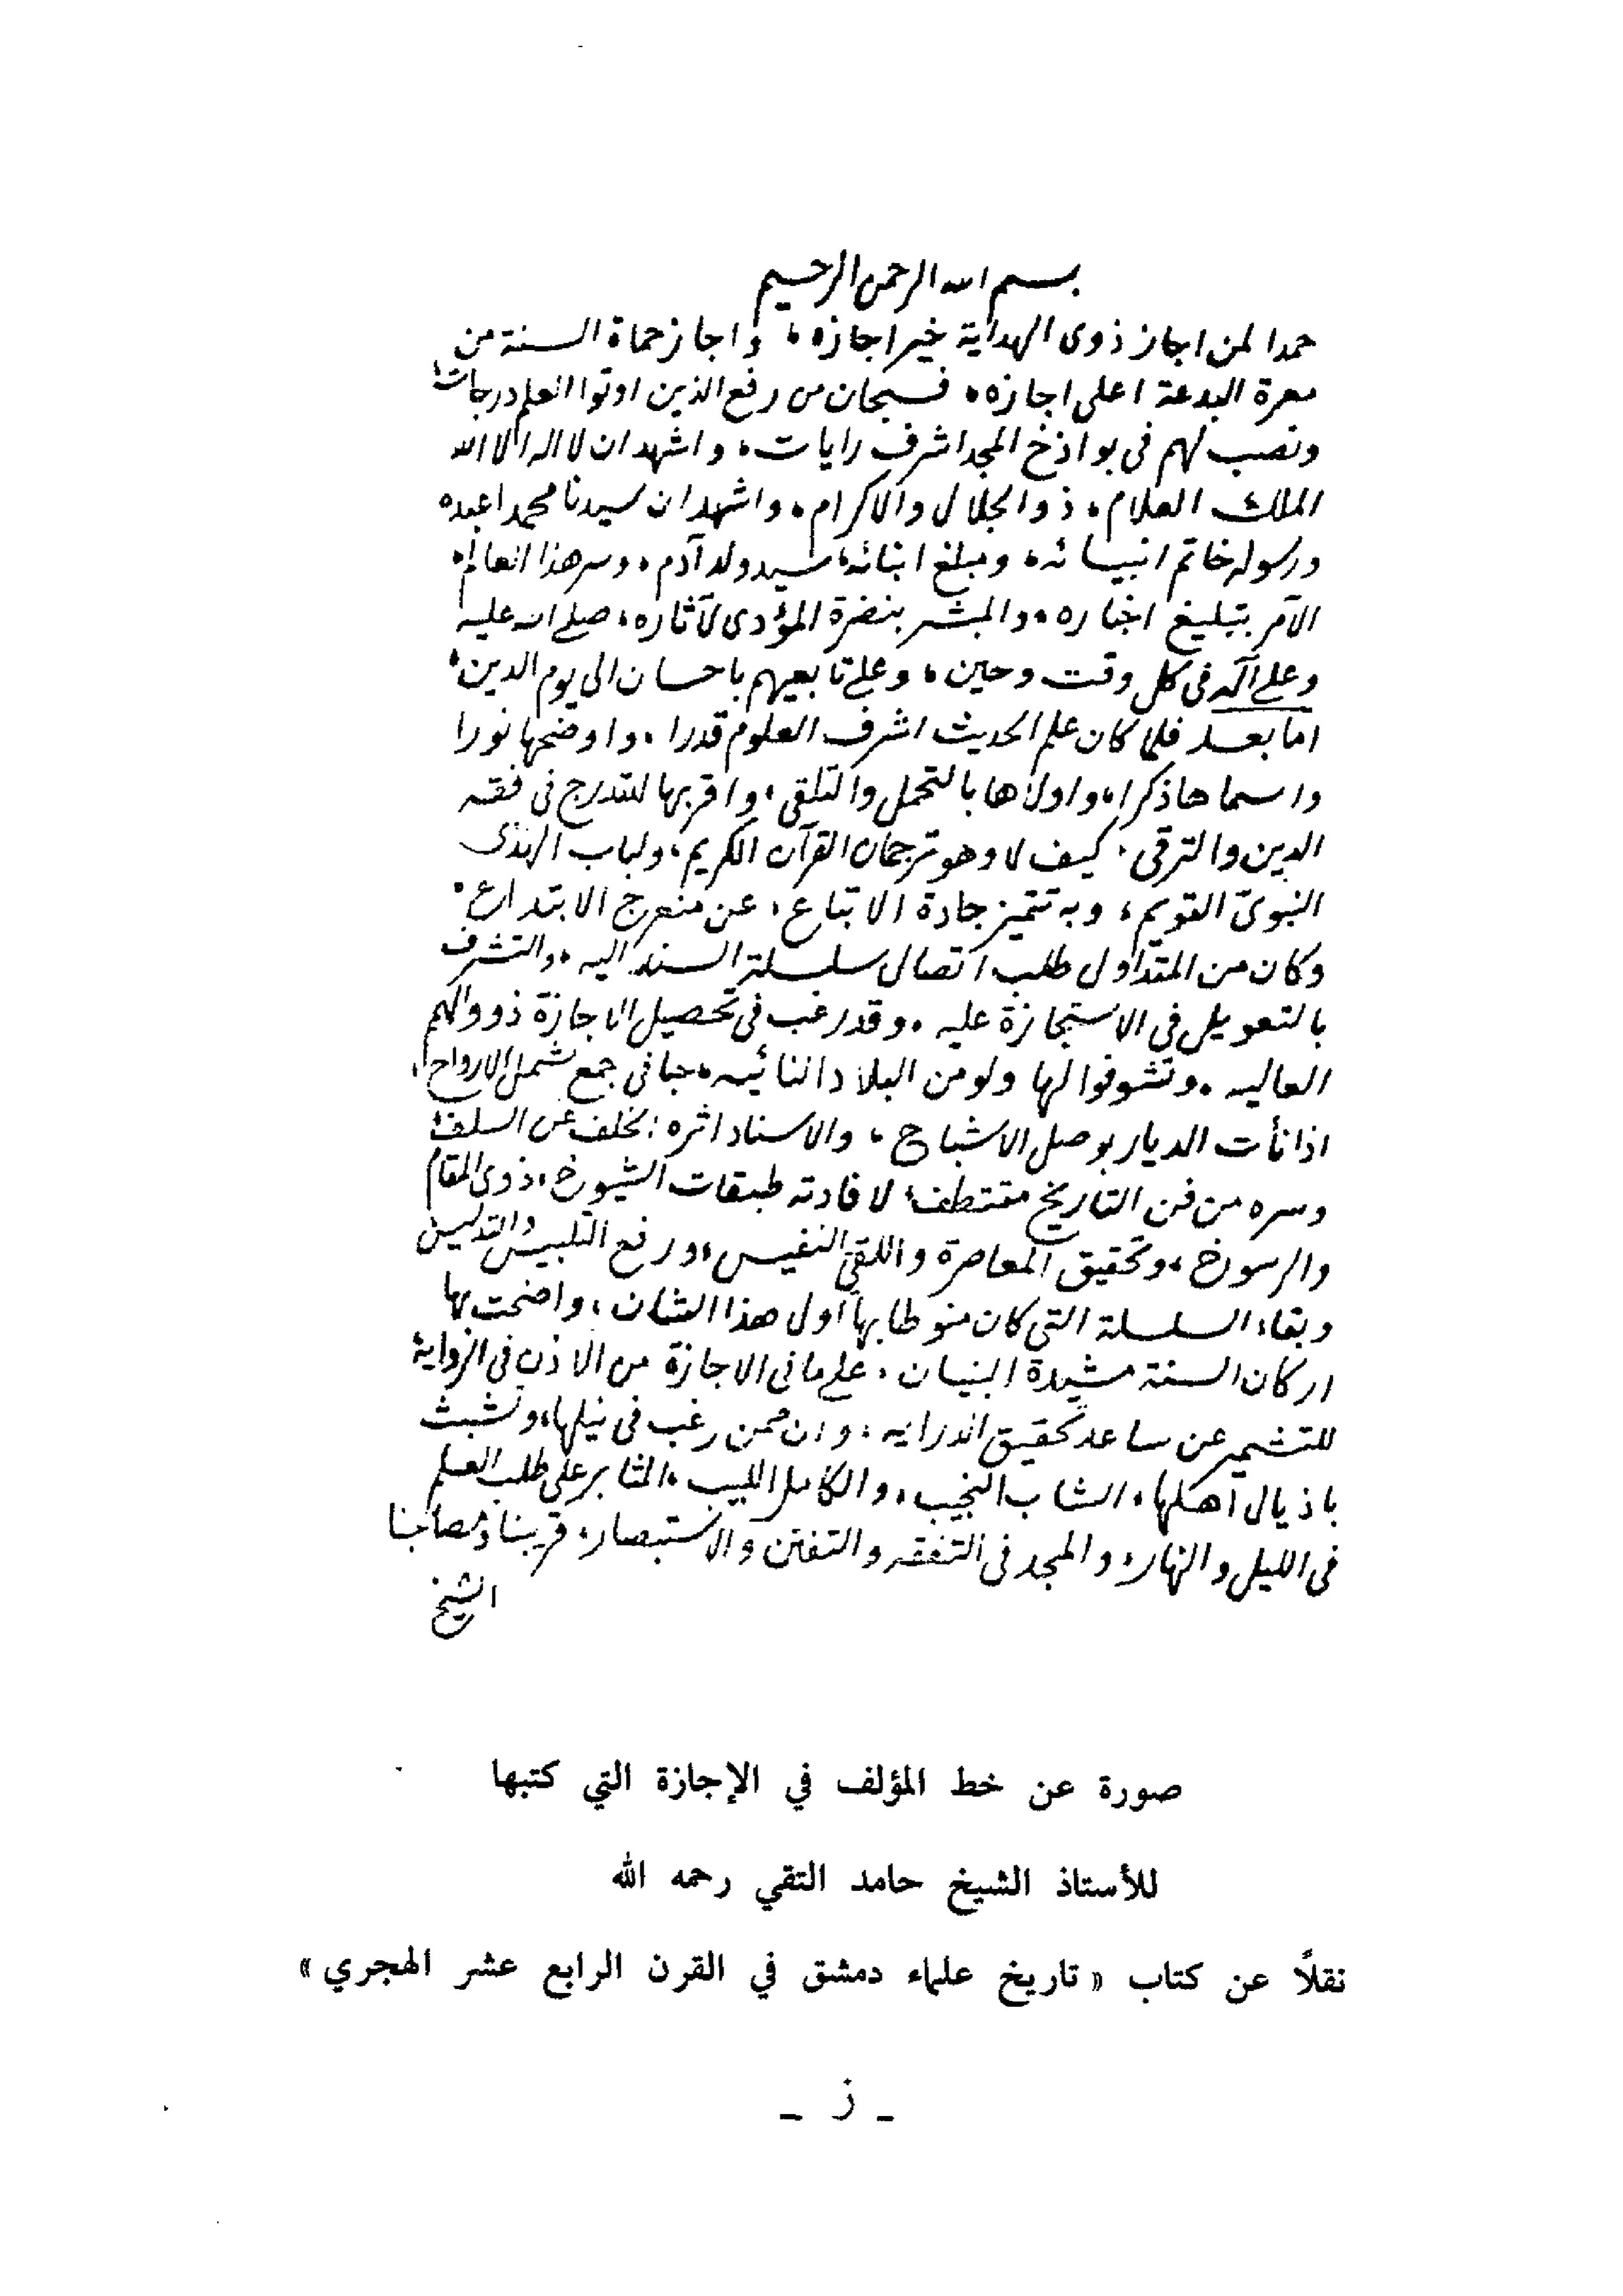 بسم الله الرحمن الرحيم
حمدا لمن اجاز ذوى الهداية خير اجازه، واجاز حماة السنة من
معرة البدعة اعلى اجازه، فسبحان من رفع الذين اوتوا العلم درجات،
ونصب لهم فى بواذخ المجد اشرف رايات، واشهد ان لا اله الا الله
الملك العلام، ذو الجلال والاكرام، واشهد ان سيدنا محمدا عبده
ورسوله خاتم انبيائه، ومبلغ انبائه، سيد ولد آدم، وسر هذا العالم،
الآمر بتبليغ اخباره، والمبشر بنضرة المؤدى لآثاره، صلى الله عليه
وعلى آله فى كل وقت وحين، وعلى تابعيهم باحسان الى يوم الدين،
اما بعد فلما كان علم الحديث اشرف العلوم قدرا، واوضحها نورا
واسماها ذكرا، واولاها بالتحمل والتلقى، واقربها للتدرج فى فقه
الدين والترقى، كيف لا وهو ترجمان القرآن الكريم، ولباب الهدى
النبوى القويم، وبه تتميز جادة الاتباع، عن منعرج الابتداع،
وكان من المتداول طلب اتصال سلسلة السند اليه، والتشرف
بالتعويل فى الاستجازة عليه، وقد رغب فى تحصيل الاجازة ذوو الهمم
العاليه، وتشوفوا لها ولو من البلاد النائيه، حبا فى جمع شمل الارواح،
اذا نأت الديار بوصل الاشباح، والاسناد اثره: بخلف عن السلف،
وسره من فن التاريخ مقتطف، لافادته طبقات الشيوخ، ذوى المقام
والرسوخ، وتحقيق المعاصرة واللقى النفيس، ورفع التلبيس والتدليس
وبقاء السلسلة التى كان منوطا بها اول هذا الشان، واضحت بها
اركان السنة مشيدة البنيان، على ما فى الاجازة من الاذن فى الرواية
للتشمير عن ساعد تحقيق الدرايه، وان ممن رغب فى نيلها، وتشبث
باذيال اهلها، الشاب النجيب، والكامل اللبيب، المثابر على طلب العلم
فى الليل والنهار، والمجد فى التفقه والتفنن والاستبصار، قريننا ومصاحبنا
الشيخ
صورة عن خط المؤلف في الإجازة التي كتبها
للأستاذ الشيخ حامد التقي رحمه الله
نقلًا عن كتاب « تاريخ علماء دمشق في القرن الرابع عشر الهجري »
ـ ز ـ